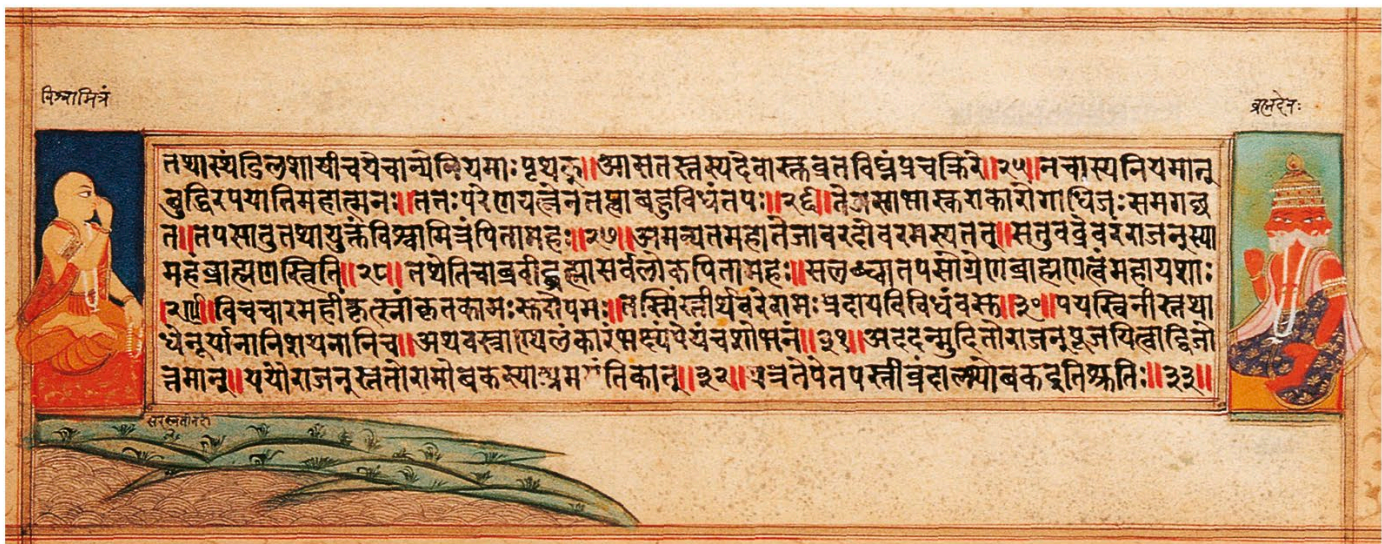 विश्वामित्रं
ब्रह्मदेवः
तथास्थंडिलशायीचयेचान्येनियमाः पृथक्॥ आसतस्तस्यदेवास्तुव्रतविघ्नंप्रचक्रिरे॥२५॥ नचास्यनियमानु
बुद्धिरपयातिमहात्मनः॥ ततः परेणयत्नेनतप्त्वाबहुविधंतपः॥२६॥ तेजसाभास्कराकारोगाधिजः समगद्य
त॥ तपसातुतथायुक्तंविश्वामित्रंपितामहः॥२७॥ अमन्यतमहातेजावरदोवरमस्यतत्॥ सतुवव्रेवरंराजन्स्या
महंब्राह्मणस्त्विति॥२८॥ तथेतिचाब्रवीद्ब्रह्मासर्वलोकपितामहः॥ सलब्ध्वातपसोग्रेणब्राह्मणत्वंमहायशाः
॥२९॥ विचचारमहींकृत्स्नांकृतकामः सुरोपमः॥ तस्मिंस्तीर्थवरेरामः प्रदायविविधंवसु॥३०॥ पयस्विनीस्तथा
धेनूर्यानानिशयनानिच॥ अथवस्त्राण्यलंकारंभक्ष्यंपेयंचशोभनं॥३१॥ अददन्मुदितोराजन्पूजयित्वाद्विजो
त्तमान्॥ ययौराजन्स्ततोरामोबकस्याश्रममंतिकात्॥३२॥ यत्रतेपेतपस्तीव्रंदाल्भ्योबकइतिश्रुतिः॥३३॥
सरस्वतीनदी